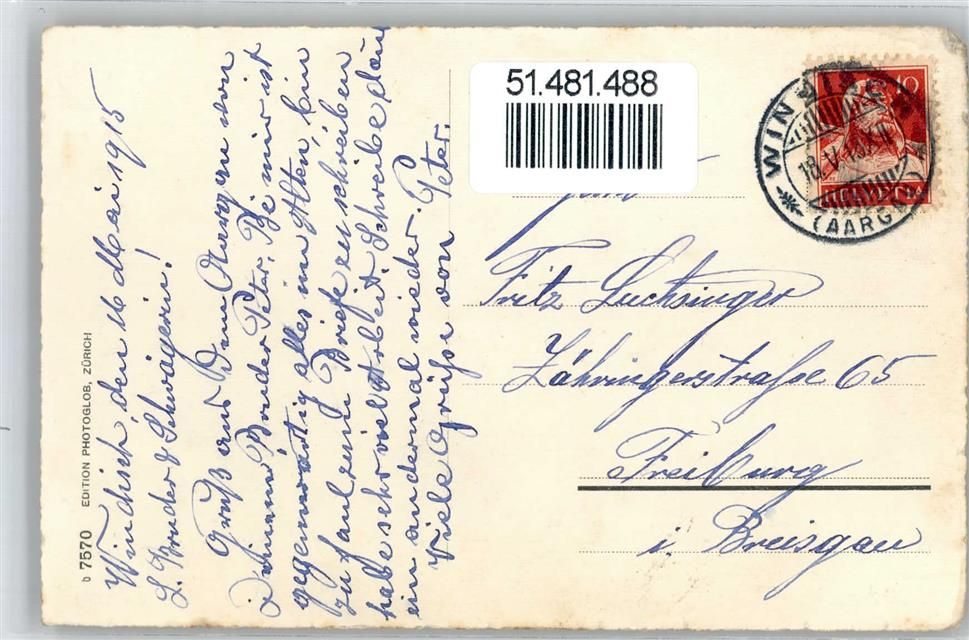 Windisch, den 16 Mai 1915
L. Bruder & Schwägerin!
Gruß aus dem Aargau von
deinem Bruder Peter. Bei mir ist
gegenwärtig alles im Alten, bin
zu faul ein Briefe zu schreiben
habe sehr viel Arbeit. Schreibe dan
ein andermal wieder.
Viele Grüße von Peter.
b 7570 EDITION PHOTOGLOB, ZÜRICH
51.481.488
WINDISCH
18.V.
(AARGAU)
10
HELVETIA
Fritz Luchsinger
Zähringerstraße 65
Freiburg
i. Breisgau